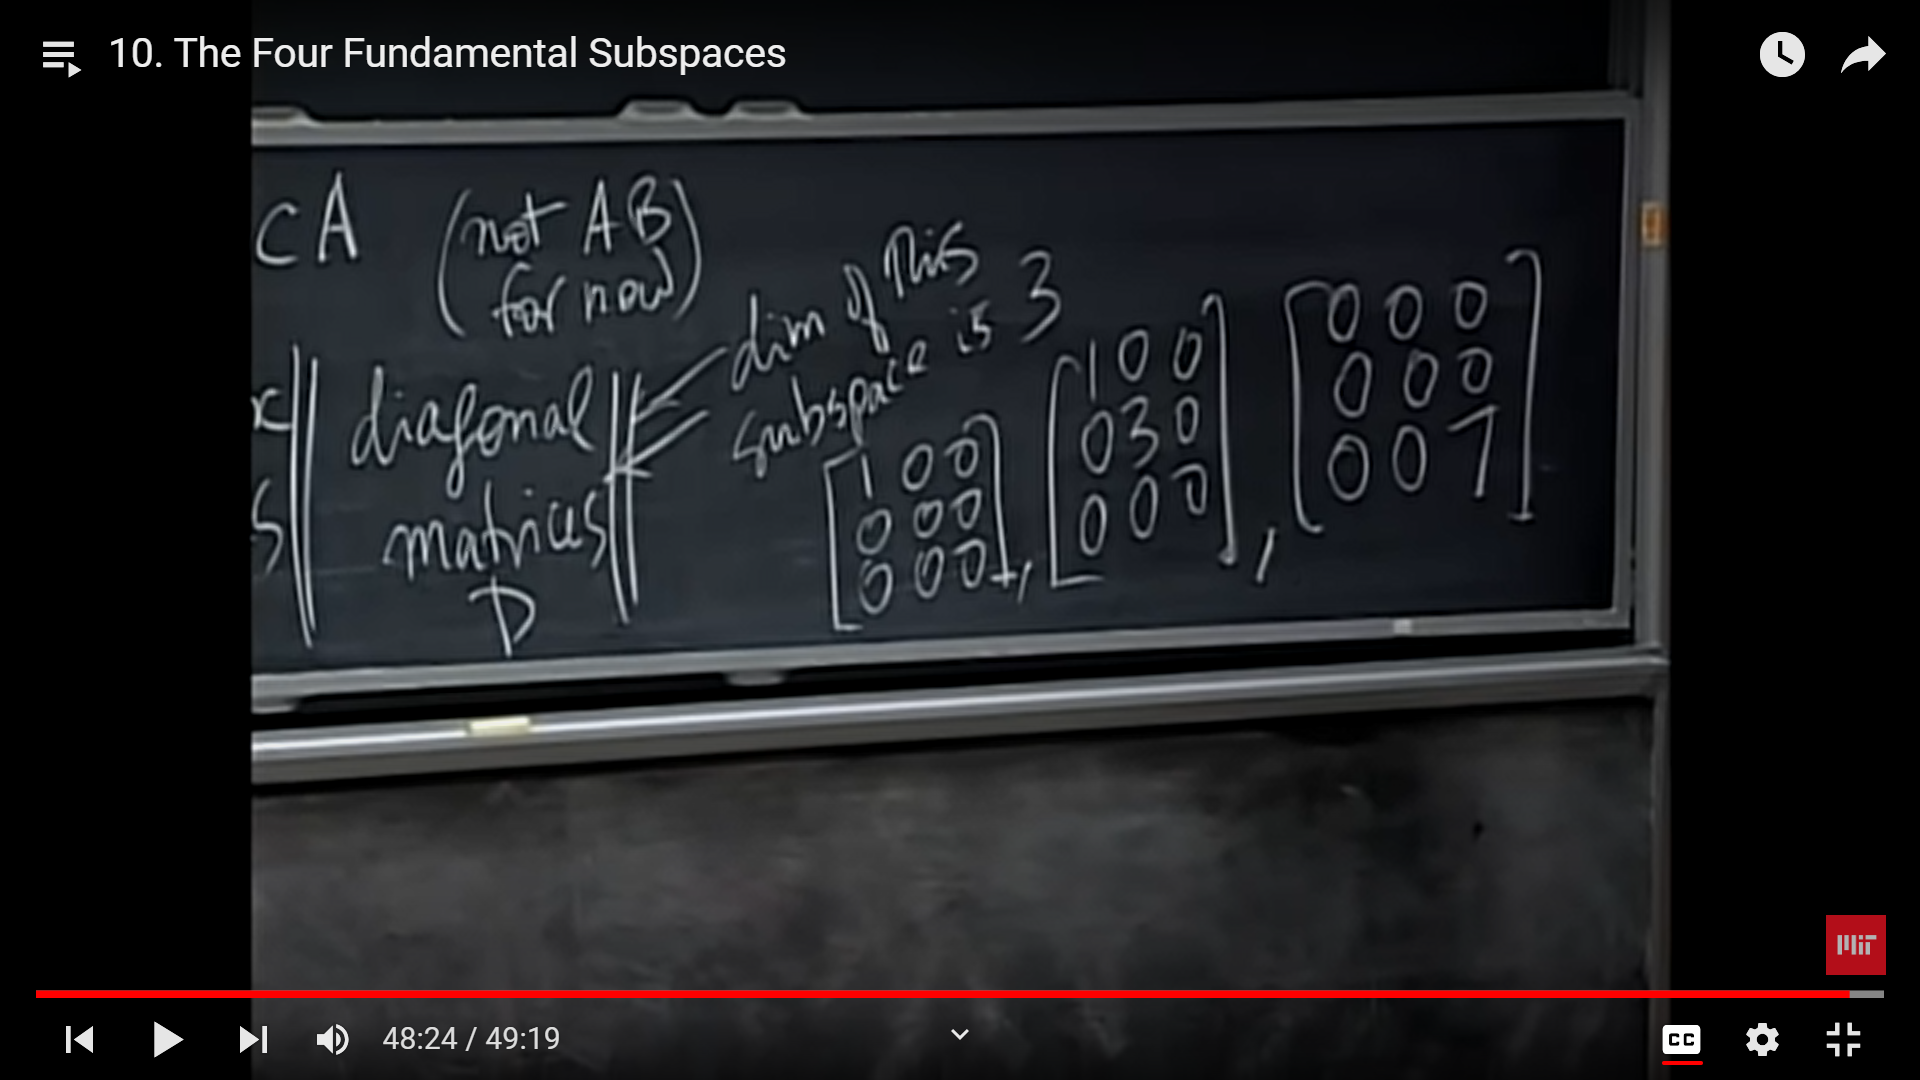 10. The Four Fundamental Subspaces
CA (not AB
for now)
x diagonal
s matrices
D
dim of this
subspace is 3
[1 0 0
0 0 0
0 0 0],
[1 0 0
0 3 0
0 0 0],
[0 0 0
0 0 0
0 0 7]
MIT
48:24 / 49:19
CC